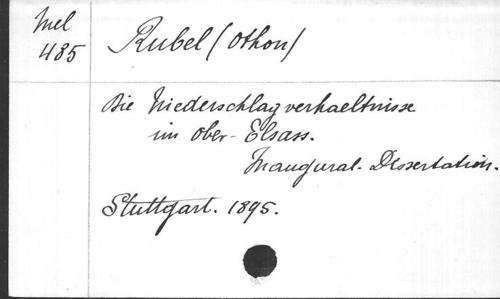 Mel
485
Rubel (Othon)
Die Niederschlagverhaeltnisse
im Ober-Elsass.
Inaugural-Dissertation.
Stuttgart. 1895.